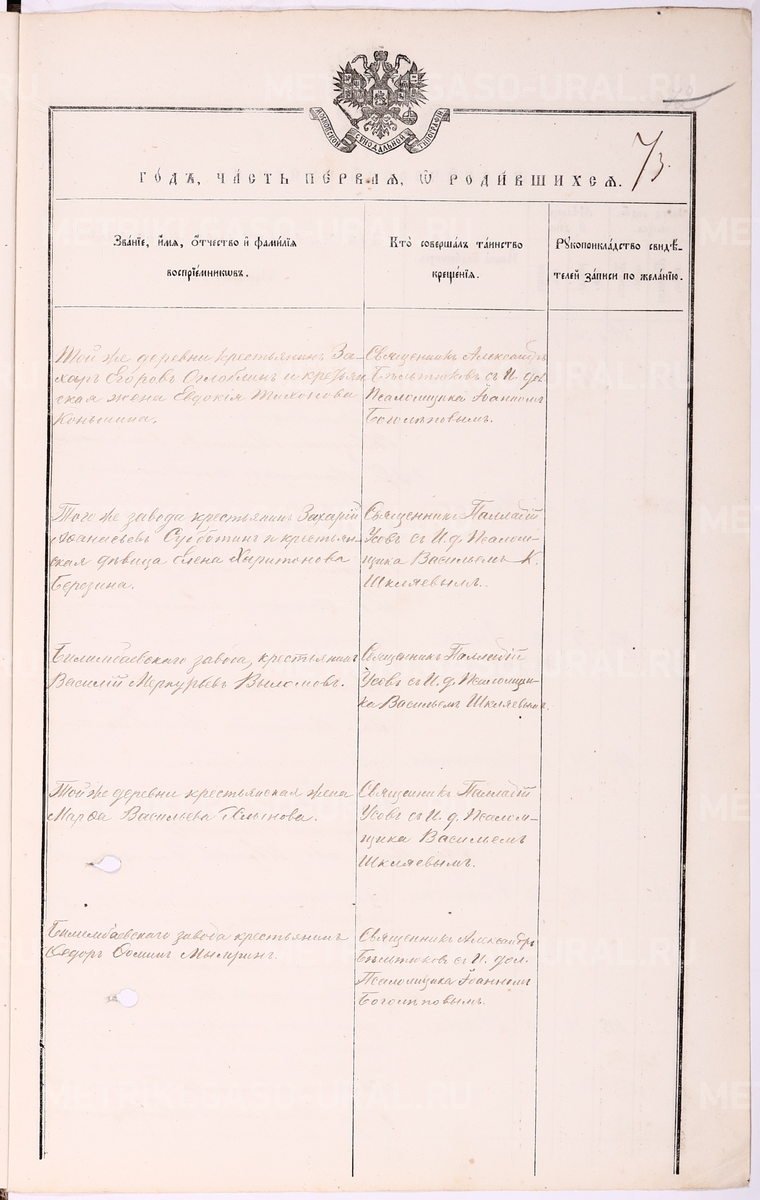 МОСКОВСКОЙ СѴНОДАЛЬНОЙ ТИПОГРАФІИ
73.
ГО́ДЪ, ЧА́СТЬ ПЕ́РВАѦ, Ѡ҆ РОДИ́ВШИХСѦ.
Зва́нїе, и҆́мѧ, ѻ҆́тчество и҆ фами́лїѧ
воспрїе́мникѡвъ.
Кто̀ соверша́лъ та́инство
креще́нїѧ.
Рꙋкоприкла́дство свидѣ́-
телей за́писи по жела́нїю.
Той же деревни крестьянинъ За-
харъ Егоровъ Оглоблинъ и крестьян
ская жена Евдокія Тихонова
Конышина.
Священникъ Александръ
Бѣльтюковъ съ И. дол.
Псаломщика Іоанномъ
Боголѣповымъ.
Того же завода крестьянинъ Захарій
Аѳанасьевъ Субботинъ и крестьян-
ская дѣвица Елена Харитонова
Березина.
Священникъ Палладій
Усовъ съ И. д. Псалом-
щика Васильемъ К.
Шкляевымъ.
Билимбаевскаго завода, крестьянинъ
Василій Меркурьевъ Выломовъ.
Священникъ Палладій
Усовъ съ И. д. Псаломщи-
ка Васильемъ Шкляевымъ.
Той же деревни крестьянская жена
Марѳа Васильева
Священникъ Палладій
Усовъ съ И. д. Псалом-
щика Васильемъ
Шкляевымъ.
Билимбаевскаго завода крестьянинъ
Ѳедоръ Ѳоминъ Мымринъ.
Священникъ Александръ
Бѣльтюковъ съ И. дол.
Псаломщика Іоанномъ
Боголѣповымъ.
METRIKI.GASO-URAL.RU